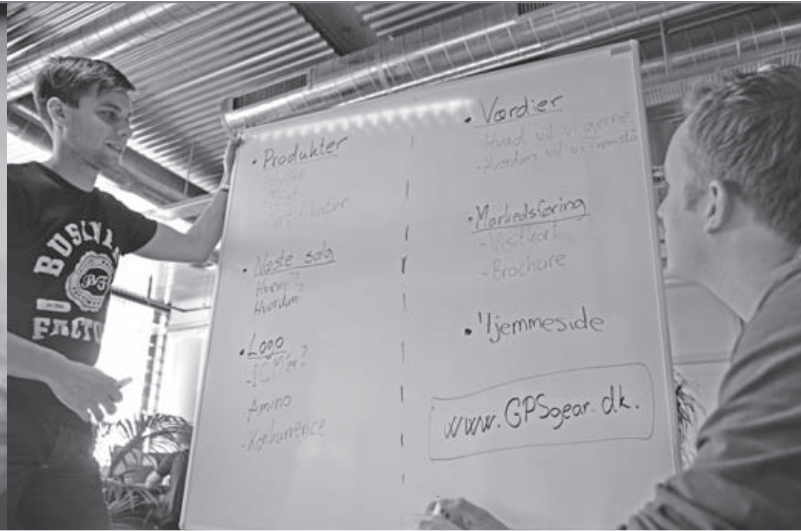 BUSINESS
FACTO
• Produkter
- Certifikater
• Næste salg
Hvem?
Hvordan
• Logo
- Amino
- Konkurrence
• Værdier
- Hvad vil vi gerne
- Hvordan vil vi fremstå
• Markedsføring
- Visitkort
- Brochure
• Hjemmeside
www.GPSgear.dk.